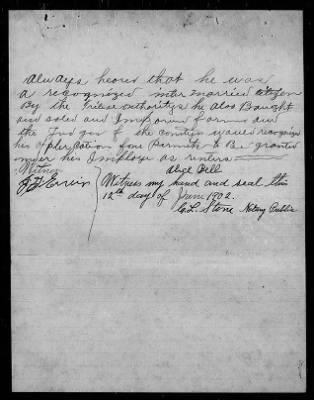 always heard that he was
a recognized inter married citizen
By the Tribal authoritys he also Bought
and soled and Improved farms and
the Judges of the counties would recognize
his application for Permits to Be granted
under his Employe as renters
Witness
Alice Bell
J D Ervin
Witness my hand and seal this
12th day of June 1902.
C.L. Stone Notary Public